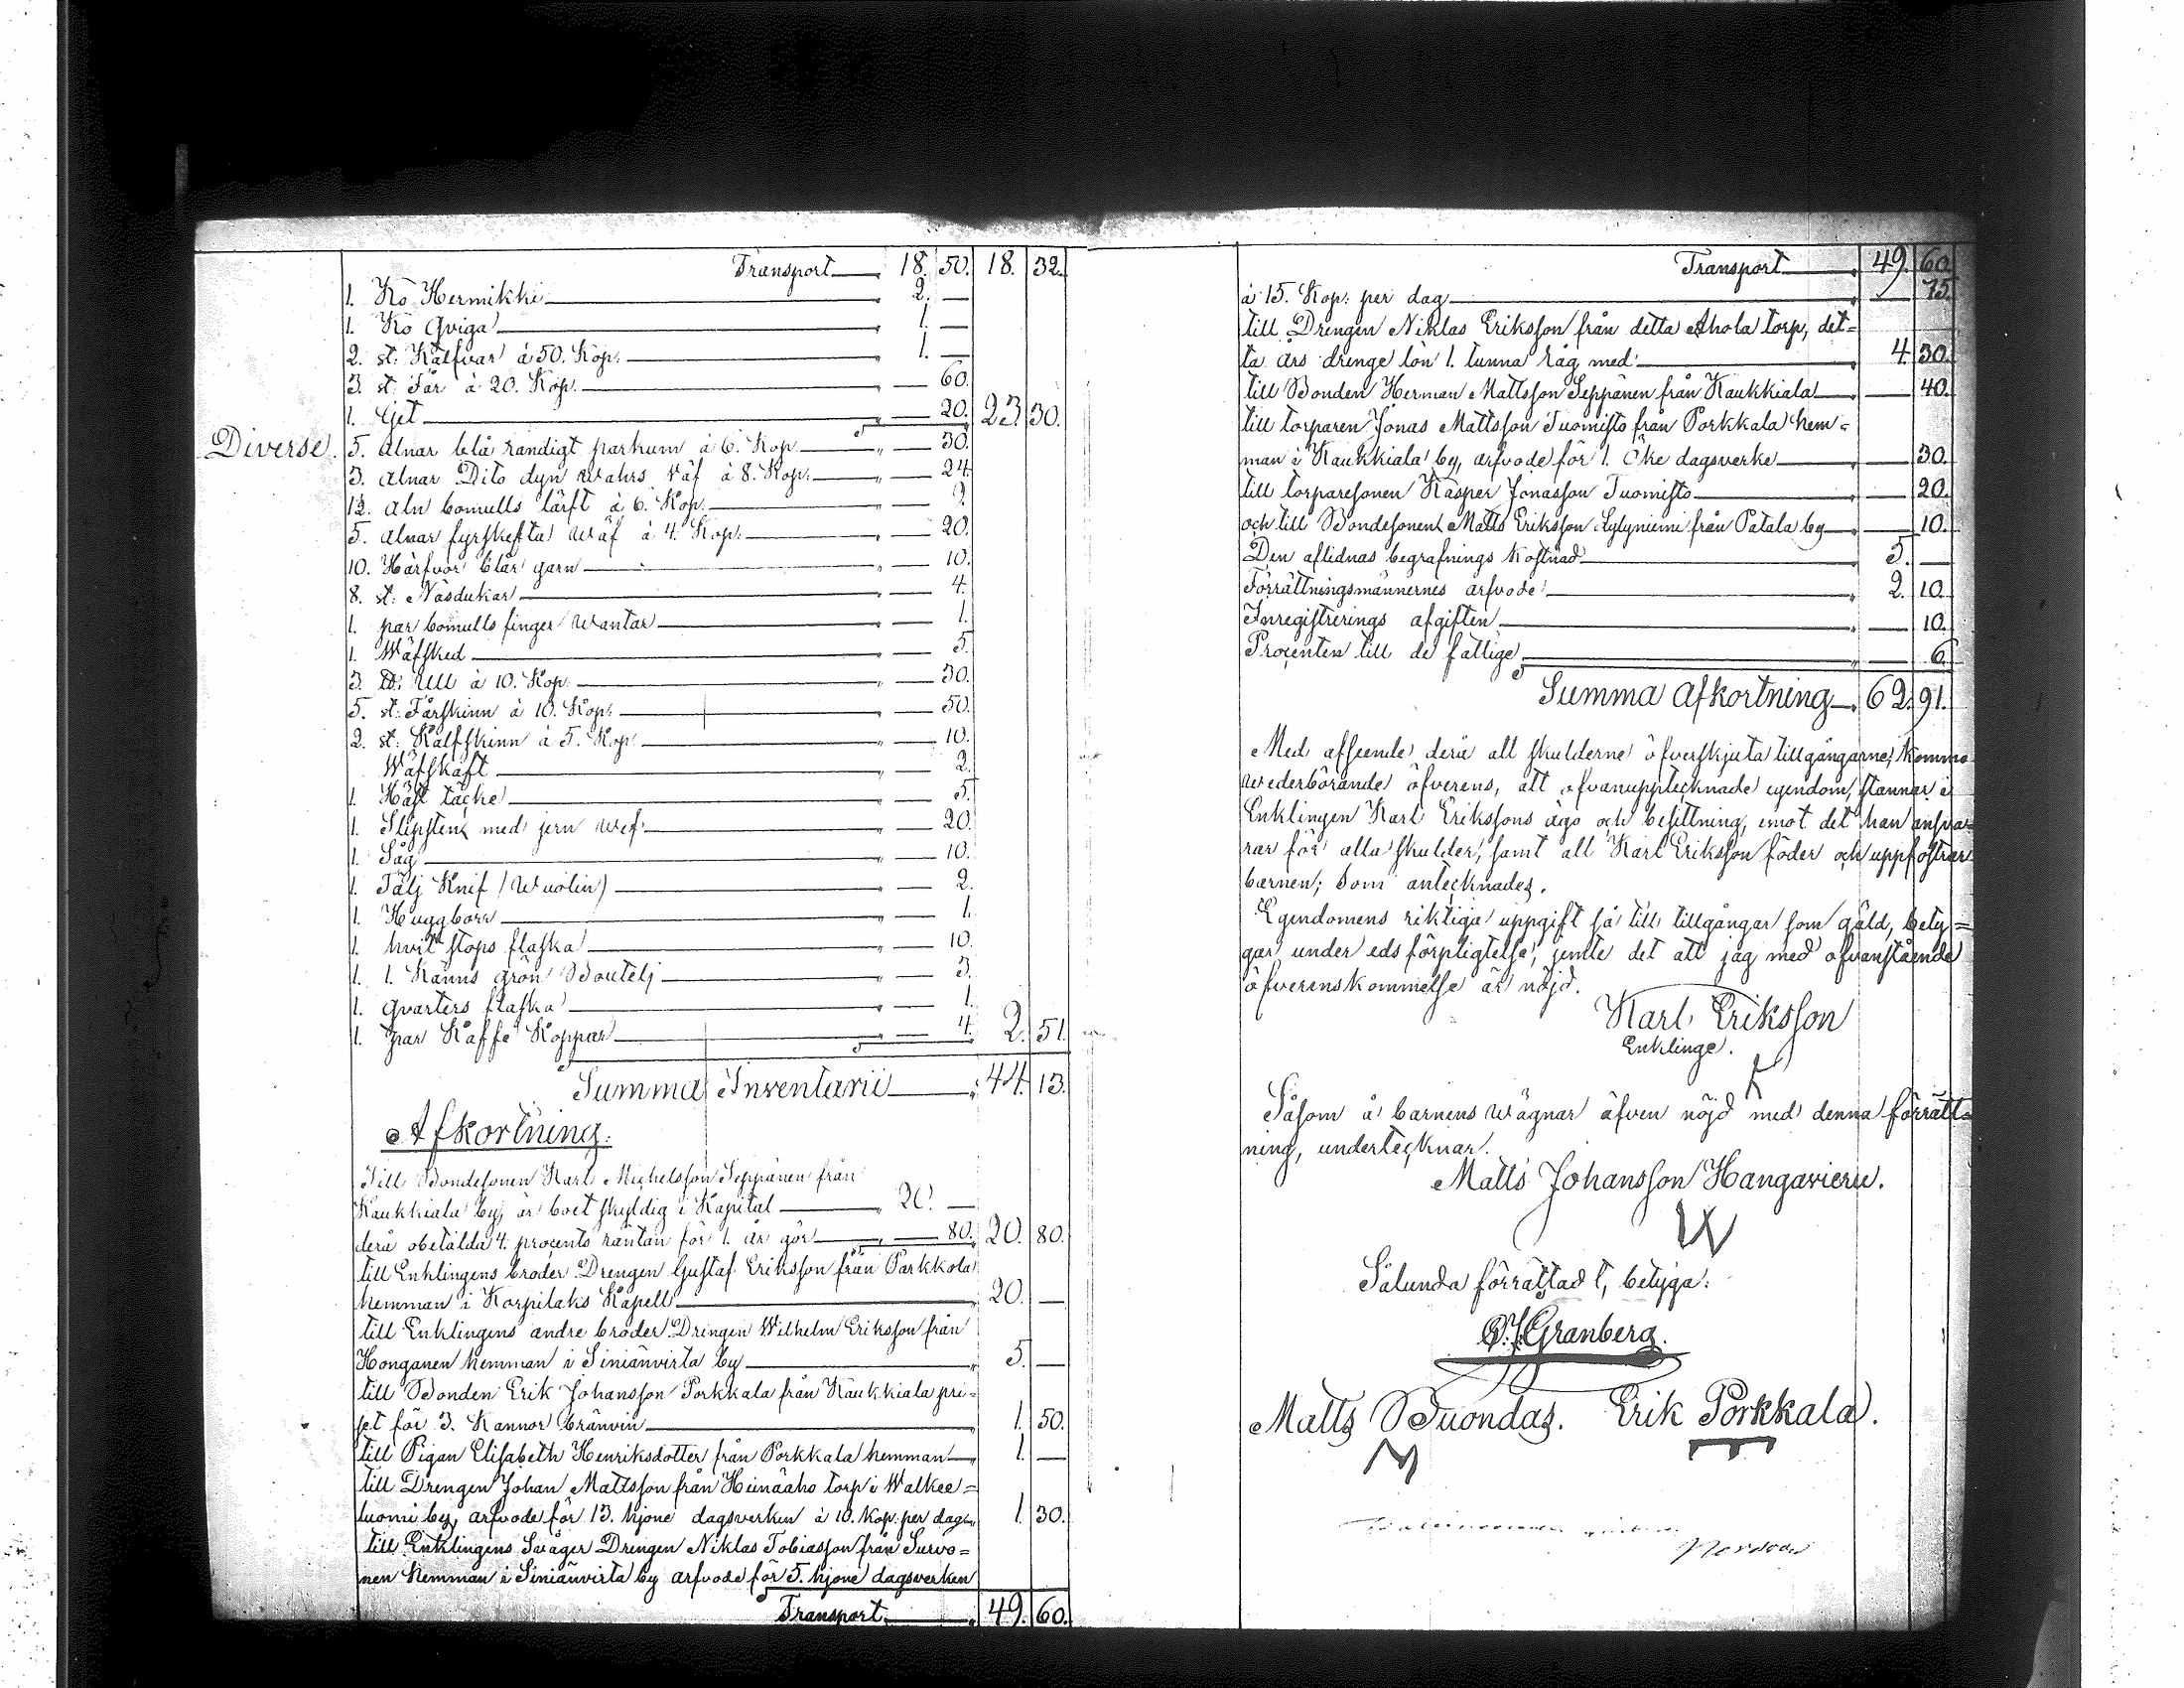 Transport 18. 50. 18. 32.
1. Ko Hermikki 2. —
1. Ko Qviga 1. —
2. st: Kalfvar à 50. Kop. 1. —
3. st: Får à 20. Kop. — 60.
1. Get — 20. 23. 30.
Diverse. 5. alnar blå randigt parkum à 6. Kop. — 30.
3. alnar Dito dyn wahrs väf à 8. Kop: — 24.
aln bomulls lärft à 6. Kop.
5. alnar fyrskefta wäf à 4. Kop: — 20.
10. Härfvor blår garn — 10.
8. st: Näsdukar — 4.
1. par bomulls finger wantar — 1.
1. Wäfsked — 5.
3. ℔: Ull à 10. Kop. — 30.
5. st: Fårskinn à 10. Kop: — 50.
2. st: Kalfskinn à 5. Kop. — 10.
Wäfskaft — 2.
1. Häst täcke — 5.
1. Slipsten med jern wef — 20.
1. Såg — 10.
1. Tälj Knif (Wuolin) — 2.
1. Huggborr — 1.
1. hvit stops flaska — 10.
1. 1. Kanns grön Boutelj — 3.
1. qvarters flaska — 1.
1. par Kaffe Koppar — 4. 2. 51.
Summa Inventarii 44. 13.
Afkortning.
Till Bondesonen Karl Michelsson Seppänen från
Kaukkiala by, är boet skyldig i Kapital 20. —
derå obetalda 4. procents räntan för 1. år gör — 80. 20. 80.
till Enklingens broder Drengen Gustaf Eriksson från Parkkola
hemman i Korpilaks Kapell 20. —
till Enklingens andre broder Drengen Wilhelm Eriksson från
Honganen hemman i Siniänvirta by 5. —
till Bonden Erik Johansson Porkkala från Kaukkiala pri-
set för 3. Kannor bränvin 1. 50.
till Pigan Elisabeth Henriksdotter från Porkkala hemman 1. —
till Drengen Johan Mattsson från Heinäaho torp i Walkee-
luomi by, arfvode för 13. hjone dagsverken à 10. Kop. per dag 1. 30.
till Enklingens Swåger Drengen Niklas Tobiasson från Survo-
nen hemman i Siniänvirta by arfvode för 5. hjone dagsverken
Transport 49. 60.
Transport 49. 60.
à 15. Kop: per dag — 75.
till Drengen Niklas Eriksson från detta Ahola torp, det-
ta års drenge lön 1. tunna råg med 4. 30.
till Bonden Herman Mattsson Seppänen från Kaukkiala — 40.
till torparen Jonas Mattsson Tuomisto från Porkkala hem-
man i Kaukkiala by, arfvode för 1. Öke dagsverke — 30.
till torparesonen Kasper Jonasson Tuomisto — 20.
och till Bondesonen Matts Eriksson Lylyniemi från Patala by — 10.
Den aflidnas begrafnings Kostnad 5. —
Förrättningsmännernes arfvode 2. 10.
Inregistrerings afgiften — 10.
Procenten till de fattige — 6.
Summa Afkortning 62. 91.
Med afseende derå att skulderne öfverskjuta tillgångarne, Kommo
wederbörande öfverens, att ofvanupptecknade egendom, stannar i
Enklingen Karl Erikssons ägo och besittning, emot det han ansva-
rar för alla skulder, samt att Karl Eriksson föder och uppfostrar
barnen; som antecknades.
Egendomens riktiga uppgift så till tillgångar som gäld, bety-
gar under eds förpligtelse, jemte det att jag med ofvanstående
öfverenskommelse är nöjd.
Karl Eriksson
Enklinge.
Såsom å barnens wägnar äfven nöjd med denna förrätt-
ning, undertecknar.
Matts Johansson Hangavieru.
Sålunda förrättadt, betyga:
Granberg.
Matts Buondas. Erik Porkkala.